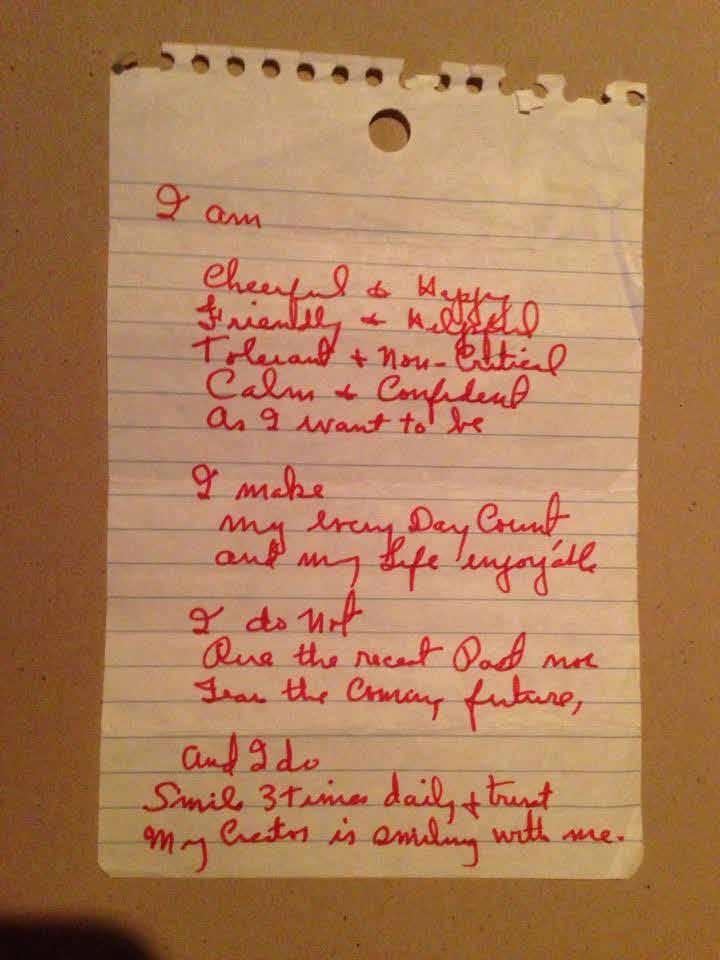 I am
Cheerful & Happy
Friendly & Helpful
Tolerant + Non-Critical
Calm & Confident
As I want to be
I make
my every Day Count
and my Life enjoyable
I do Not
the recent Past nor
Fear the Coming future,
and I do
Smile 3 times daily & trust
My Creator is smiling with me.